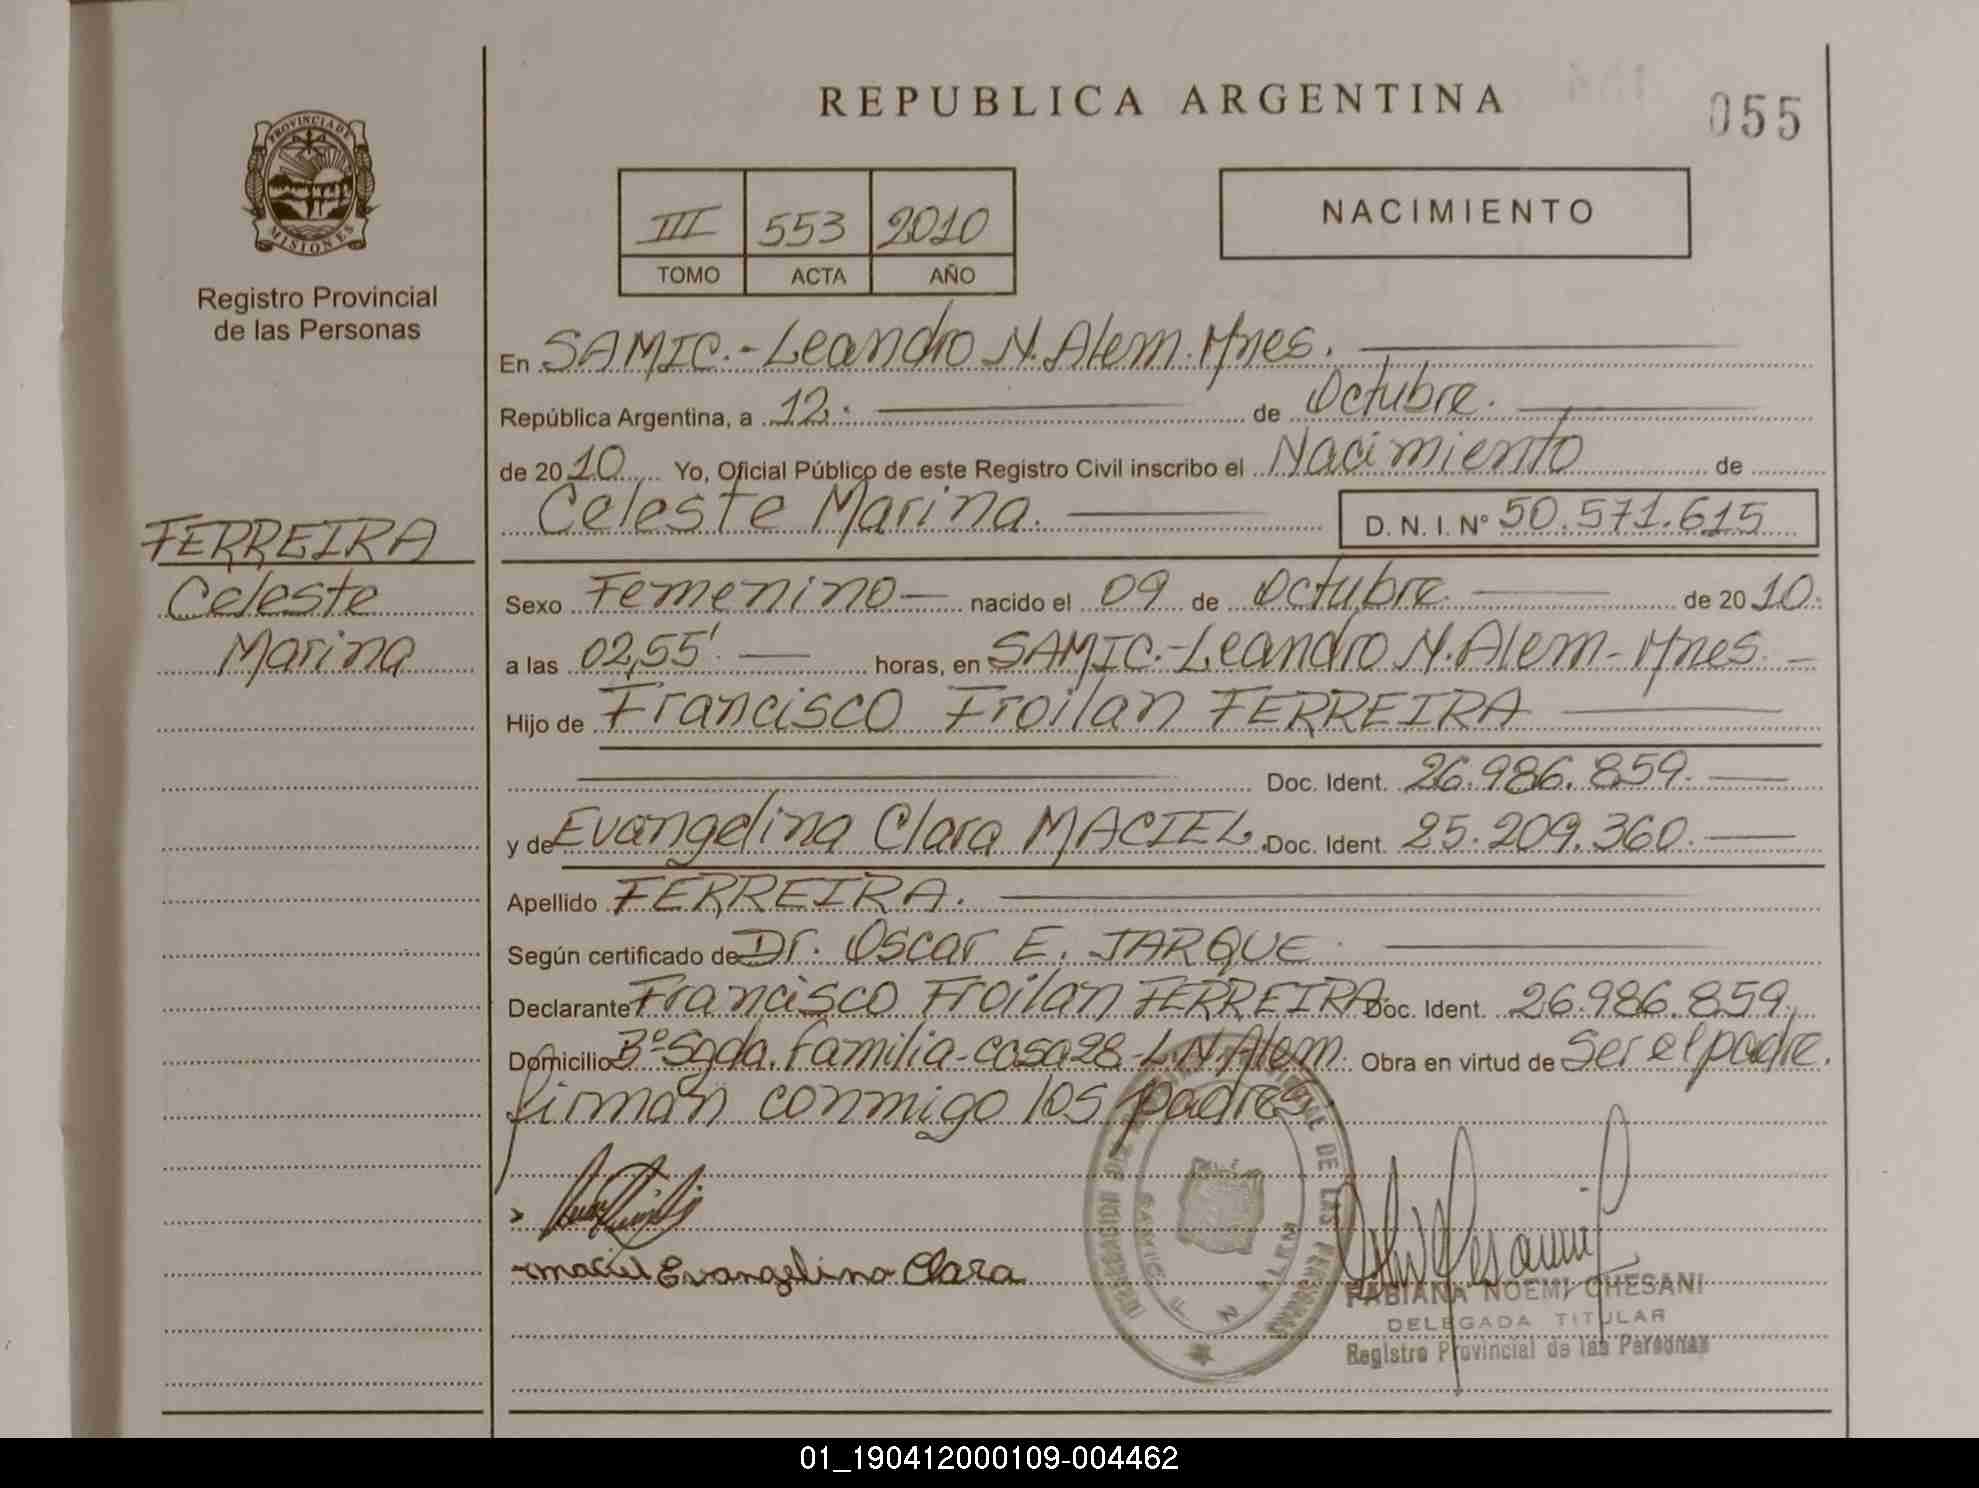 REPUBLICA ARGENTINA
055
PROVINCIA DE
MISIONES
Registro Provincial
de las Personas
III 553 2010
TOMO ACTA AÑO
NACIMIENTO
En SAMIC.-Leandro N. Alem. Mnes.
República Argentina, a 12. de Octubre.
de 20 10 Yo, Oficial Público de este Registro Civil inscribo el Nacimiento de
Celeste Marina. D. N. I. Nº 50.571.615
FERREIRA
Celeste
Marina
Sexo Femenino nacido el 09 de Octubre de 20 10.
a las 02,55' horas, en SAMIC.-Leandro N. Alem-Mnes.
Hijo de Francisco Froilan FERREIRA
Doc. Ident. 26.986.859.
y de Evangelina Clara MACIEL. Doc. Ident. 25.209.360.
Apellido FERREIRA.
Según certificado de Dr. Oscar E. JARQUE
Declarante Francisco Froilan FERREIRA Doc. Ident. 26.986.859.
Domicilio Bº Sgda. Familia-casa 28-L.N. Alem. Obra en virtud de Ser el padre.
firman conmigo los padres.
maciel Evangelina Clara
DE LAS PERSONAS
FABIANA NOEMI CHESANI
DELEGADA TITULAR
Registro Provincial de las Personas
01_190412000109-004462